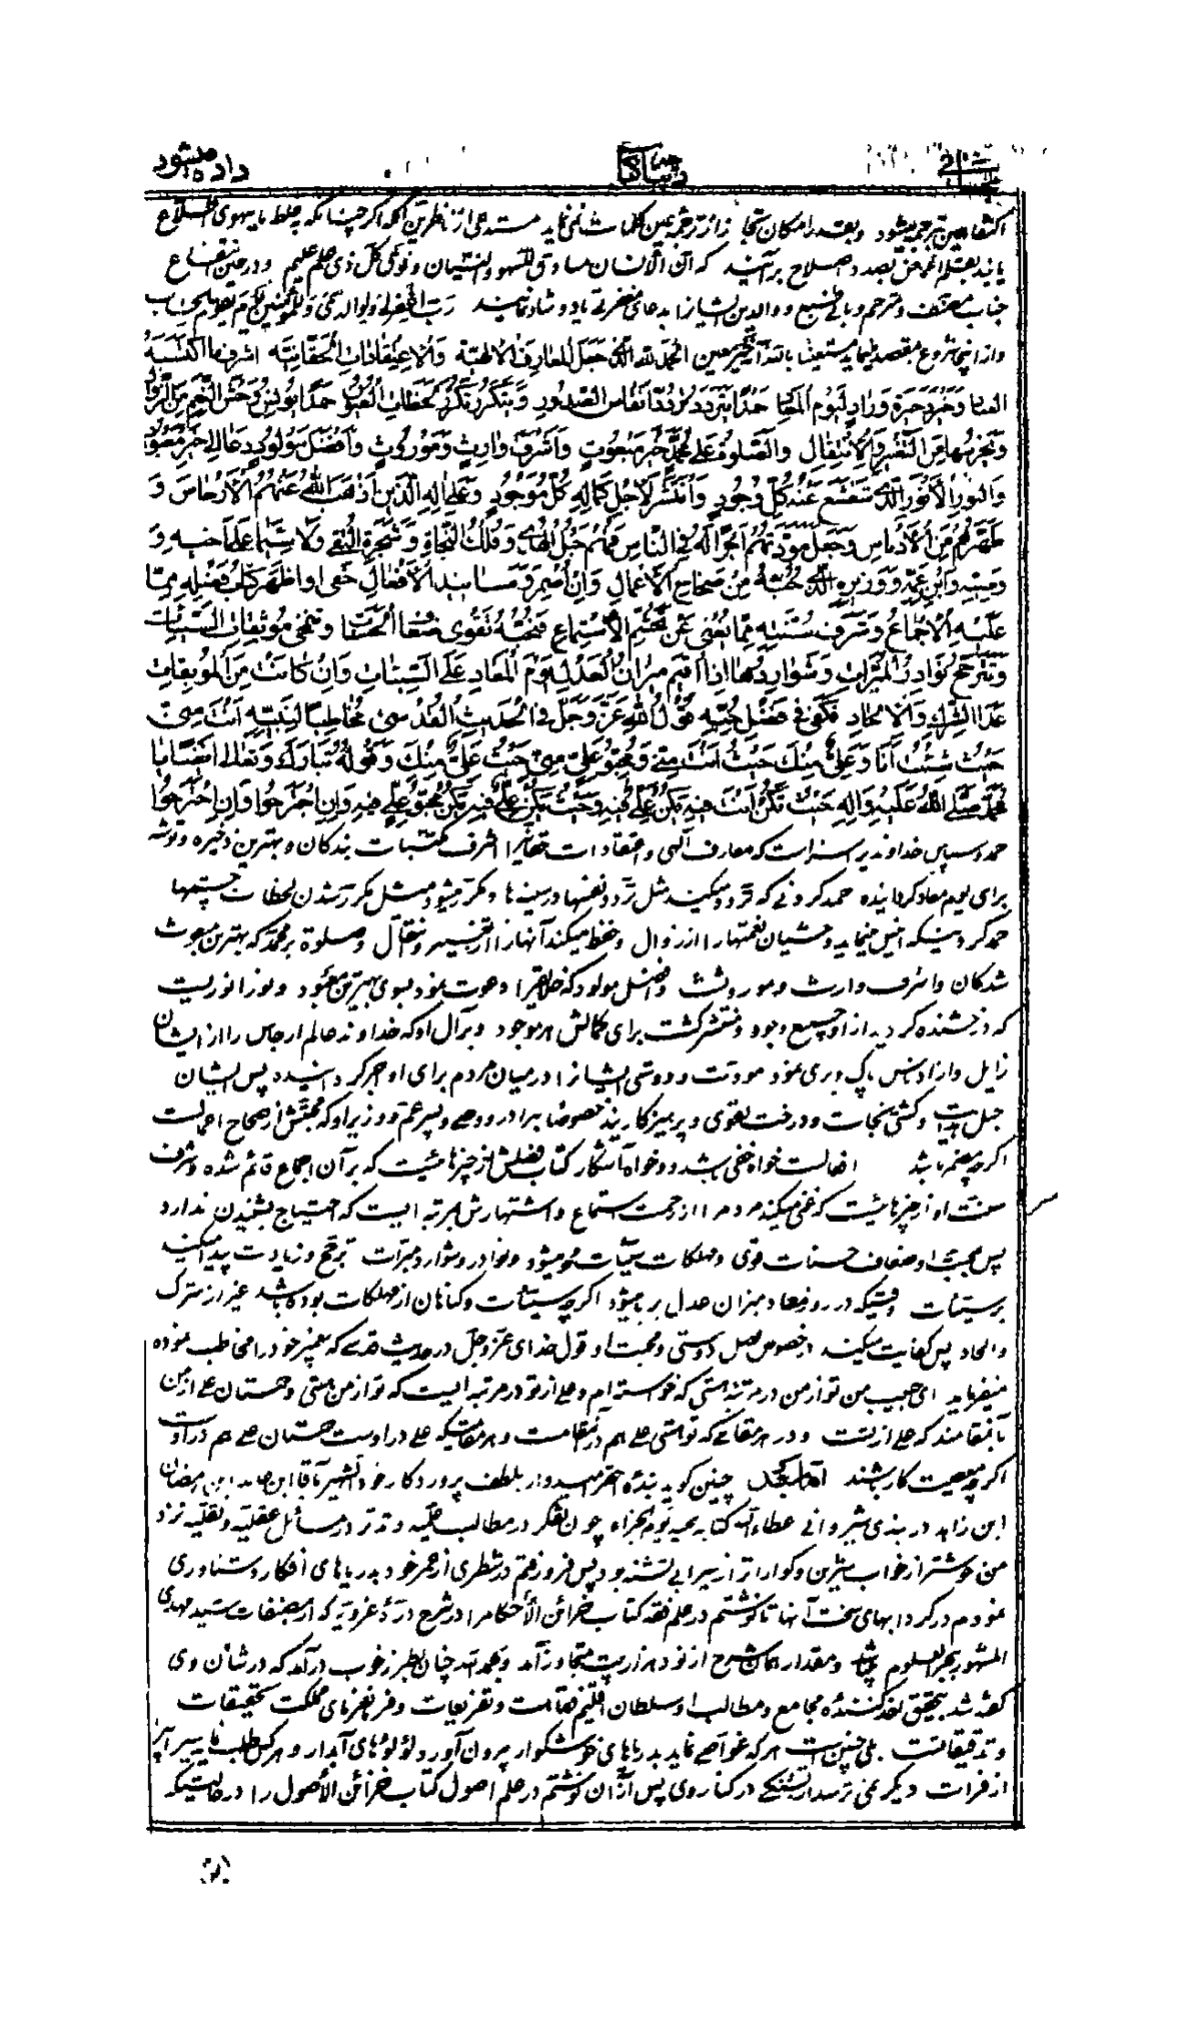 داده میشود
اکتفا بعین ترجمه میشود و بقدر امکان تجاوز از ترجمه عین کلمات نمی نماید مستدعی از ناظرین آنکه اگر چنانکه بغلط یا بسهوی اطلاع
یابند بقلم اصلاح برآیند که ان الانسان مساوق للسهو والنسیان وفوق کل ذی علم علیم و در حین انتفاع
جناب مصنف و مترجم و بانی طبع و والدین ایشانرا بدعای مغفرت یاد و شاد نمایند رب اغفرلی ولوالدی وللمؤمنین یوم یقوم الحساب
و از اینجا شروع بمقصد مینماید مستعینا بالله الحمد لله الذی جعل المعارف الالهیة والاعتقادات الحقانیة اشرف ما اکتسبه
العباد وخیر ذخیرة وزاد لیوم المعاد حمدا یتردد تردد انفاس الصدور ویتکرر تکرر لحظات العیون حمدا یونس وحش النعم من الزوال
ویحرسها من التغییر والانتقال والصلوة علی محمد خیر مبعوث واشرف وارث وموروث وافضل مولود دعا الی خیر معبود
والنور الانور الذی تشعشع عنه کل وجود وانتشر لاجل کماله کل موجود وعلی اله الذین اذهب الله عنهم الارجاس و
طهرهم من الادناس وجعل مودتهم اجرا له فی الناس فهم حبل الهدی وفلک النجاة وشجرة التقی ولا سیما علی اخیه و
وصیه وابن عمه ووزیره الذی حبه من صحاح الاعمال وان اضمر وما ساند الافعال خفی او اظهر کتاب فضله مما
علیه الاجماع وشرف سنته مما یغنی عن تجشم الاستماع فمحبته تقوی ضعاف الحسنات وتمحی موبقات السیئات
وتترجح نوادر المبرات وشواردها اذا اقیم میزان العدل یوم المعاد علی السیئات وان کانت من الموبقات
عدا الشرک والالحاد فکفی فی فضل حبه قول الله عز وجل فی الحدیث القدسی مخاطبا لنبیه انت منی
حیث شئت انا وعلی منک حیث انت منی ومحبو علی منی حیث علی منک وقوله تبارک وتعالی ایضا یا
محمد صلی الله علیه واله حیث تکن انت فیه یکن علی فیه وحیث یکن علی فیه یکن محبو علی فیه وان اجترحوا وان اجترحوا
حمد و سپاس خداوندیرا سزاست که معارف آلهی و اعتقادات حقانیرا اشرف مکتسبات بندکان و بهترین ذخیره و توشه
برای یوم معاد کردانیده حمد کردنی که تردد میکند مثل تردد نفسها در سینه ها و مکرر میشود مثل مکرر شدن لحظات چشمها
حمد کردنیکه انیس مینماید وحشیان نعمتها را از زوال و حفظ میکند آنها را از تغییر و انتقال و صلوة بر محمد که بهترین مبعوث
شدکان و اشرف وارث و موروثست و افضل مولود که خلایقرا دعوت نمود بسوی بهترین معبود و نور انوریست
که درخشنده کردید از او جمیع وجود و منتشر کشت برای کمالش هر موجود و بر آل او که خداوند عالم ارجاس را از ایشان
زایل و از ادناس پاک و بری نمود مودت و دوستی ایشانرا در میان مردم برای او اجر کردانیده پس ایشان
حبل هدایت و کشتی نجات و درخت تقوی و پرهیزکاریند خصوصا برادر و وصی و پسر عم و وزیر او که محبتش از صحاح اعمالست
اکرچه مضمر باشد افعالست خواه مخفی باشد و خواه آشکار کتاب فضلش از چیزهائیست که بر آن اجماع قائم شده و شرف
سنت او از چیزهائیست که غنی میکند مردم را از زحمت استماع و اشتهارش بمرتبه ایست که احتیاج بشنیدن ندارد
پس بمحبت او ضعاف حسنات قوی و مهلکات سیئات محو میشود و نوادر و شوارد مبرات ترجیح و زیادت پیدا میکنند
بر سیئات وقتیکه در روز معاد میزان عدل برپا میشود اکرچه سیئات و کناهان از مهلکات بوده باشد غیر از شرک
و الحاد پس کفایت میکند در خصوص فضل دوستی و محبت او قول خدای عز و جل در حدیث قدسی که پیغمبر خود را مخاطب نموده
میفرماید ای حبیب من تو از من در مرتبه هستی که خواسته ام و علی از تو در مرتبه ایست که تو از من هستی و محبتان علی از من
بآنمقامند که علی از تست و در هر مقامی که تو هستی علی هم در آنمقامست و هر مقامیکه علی در اوست محبتان علی هم در اوست
اکرچه معصیت کار باشند اما بعد چنین کوید بنده احقر امیدوار بلطف پروردکار خود الشهیر بآقا ابن عابد ابن رمضان
ابن زاهد دربندی شیروانی عطاء الله کتابه بیمینه یوم الجزاء چون تفکر در مطالب علمیه و تدبر در مسائل عقلیه و نقلیه نزد
من خوشتر از خواب شیرین و کواراتر از سیرابی تشنه بود پس فرو رفتم در شطری از عمر خود بدریاهای افکار و شناوری
نمودم در کردابهای سخت آنها تا نوشتم در علم فقه کتاب خزائن الاحکام را در شرح درة غرویه که از مصنفات سید مهدی
المشهور ببحر العلوم میباشد و مقدار همان شرح از نود هزار بیت متجاوز آمد و بحمد الله چنان بطرز خوب درآمد که در شان وی
کفته شد بتحقیق اخذ کننده مجامع و مطالب او سلطان اقلیم فقاهت و تفریعات و فرمانفرمای مملکت تحقیقات
و تدقیقاتست بلی چنین است هر که غواصی نماید بدریاهای خوشکوار بیرون آورد لؤلؤهای آبدار و هر کس طلب نماید سیرابی
از فرات دیگر نمی ترسد از تشنکی در کنار وی پس از آن نوشتم در علم اصول کتاب خزائن الاصول را در حالتیکه